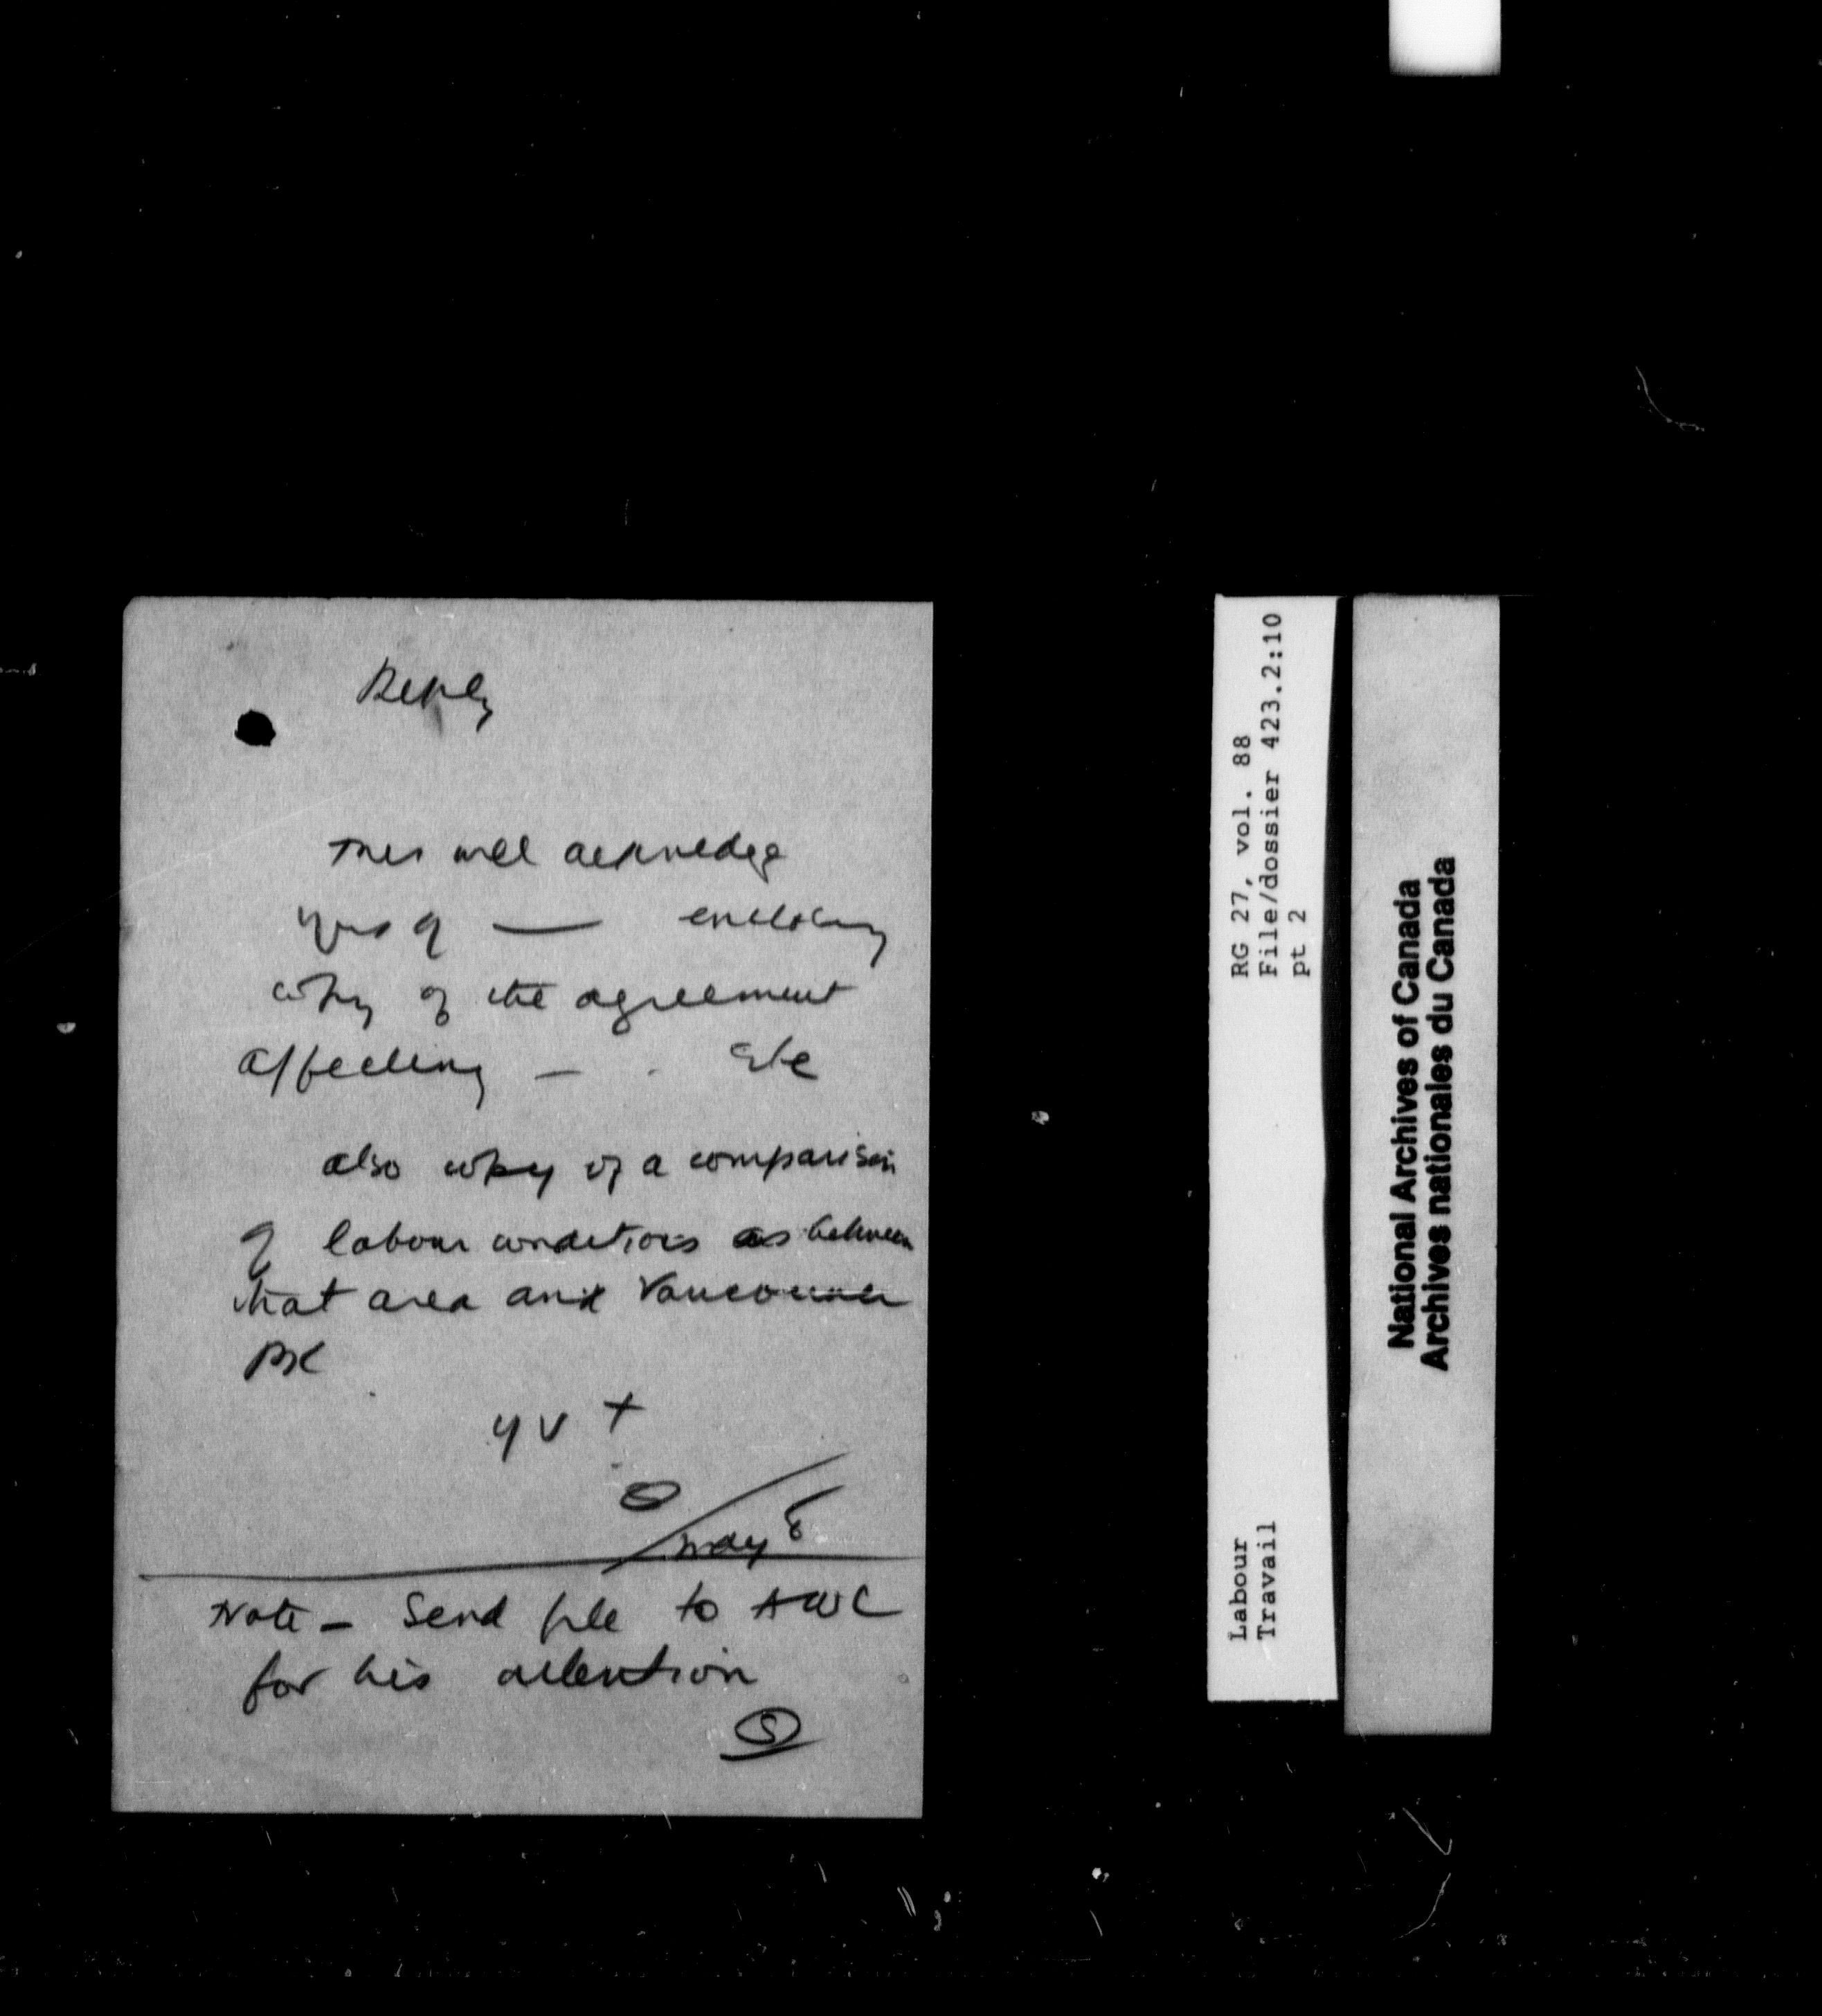 Reply
This will acknowledge
yrs of — enclosing
copy of the agreement
affecting — . etc
also copy of a comparison
of labour conditions as between
that area and Vancouver
BC
yv t
May 8
Note - Send file to AWC
for his attention
S
RG 27, vol. 88
File/dossier 423.2:10
pt 2
Labour
Travail
National Archives of Canada
Archives nationales du Canada